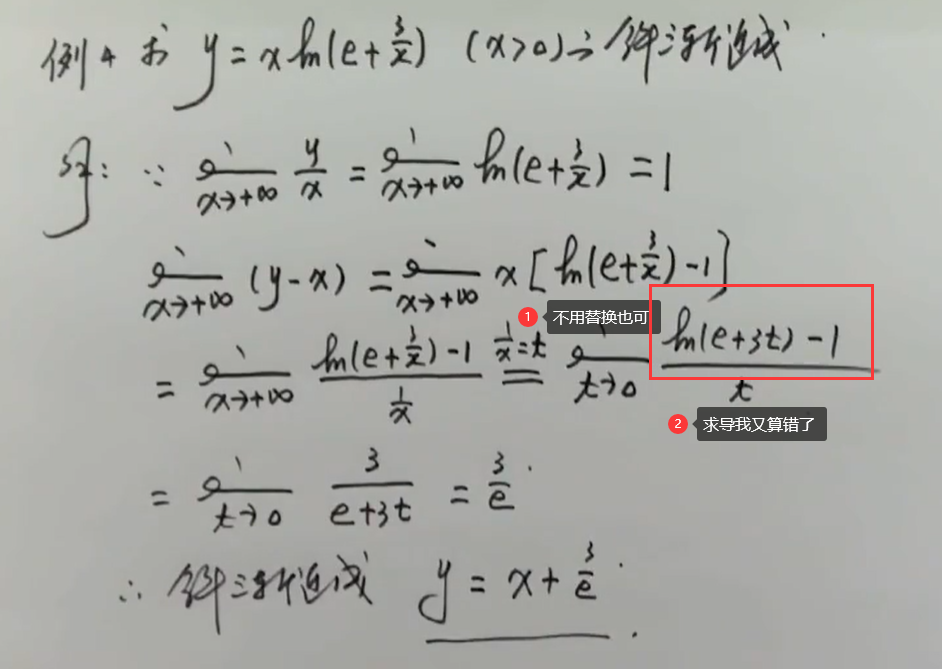 例4 求 y = x ln(e + 3/x) (x>0) 之 斜渐近线
解: ∵ lim x→+∞ y/x = lim x→+∞ ln(e + 3/x) = 1
lim x→+∞ (y - x) = lim x→+∞ x [ln(e + 3/x) - 1]
1 不用替换也可
= lim x→+∞ (ln(e + 3/x) - 1)/(1/x) 1/x = t == lim t→0 (ln(e + 3t) - 1)/t
2 求导我又算错了
= lim t→0 3/(e + 3t) = 3/e .
∴ 斜渐近线 y = x + 3/e .